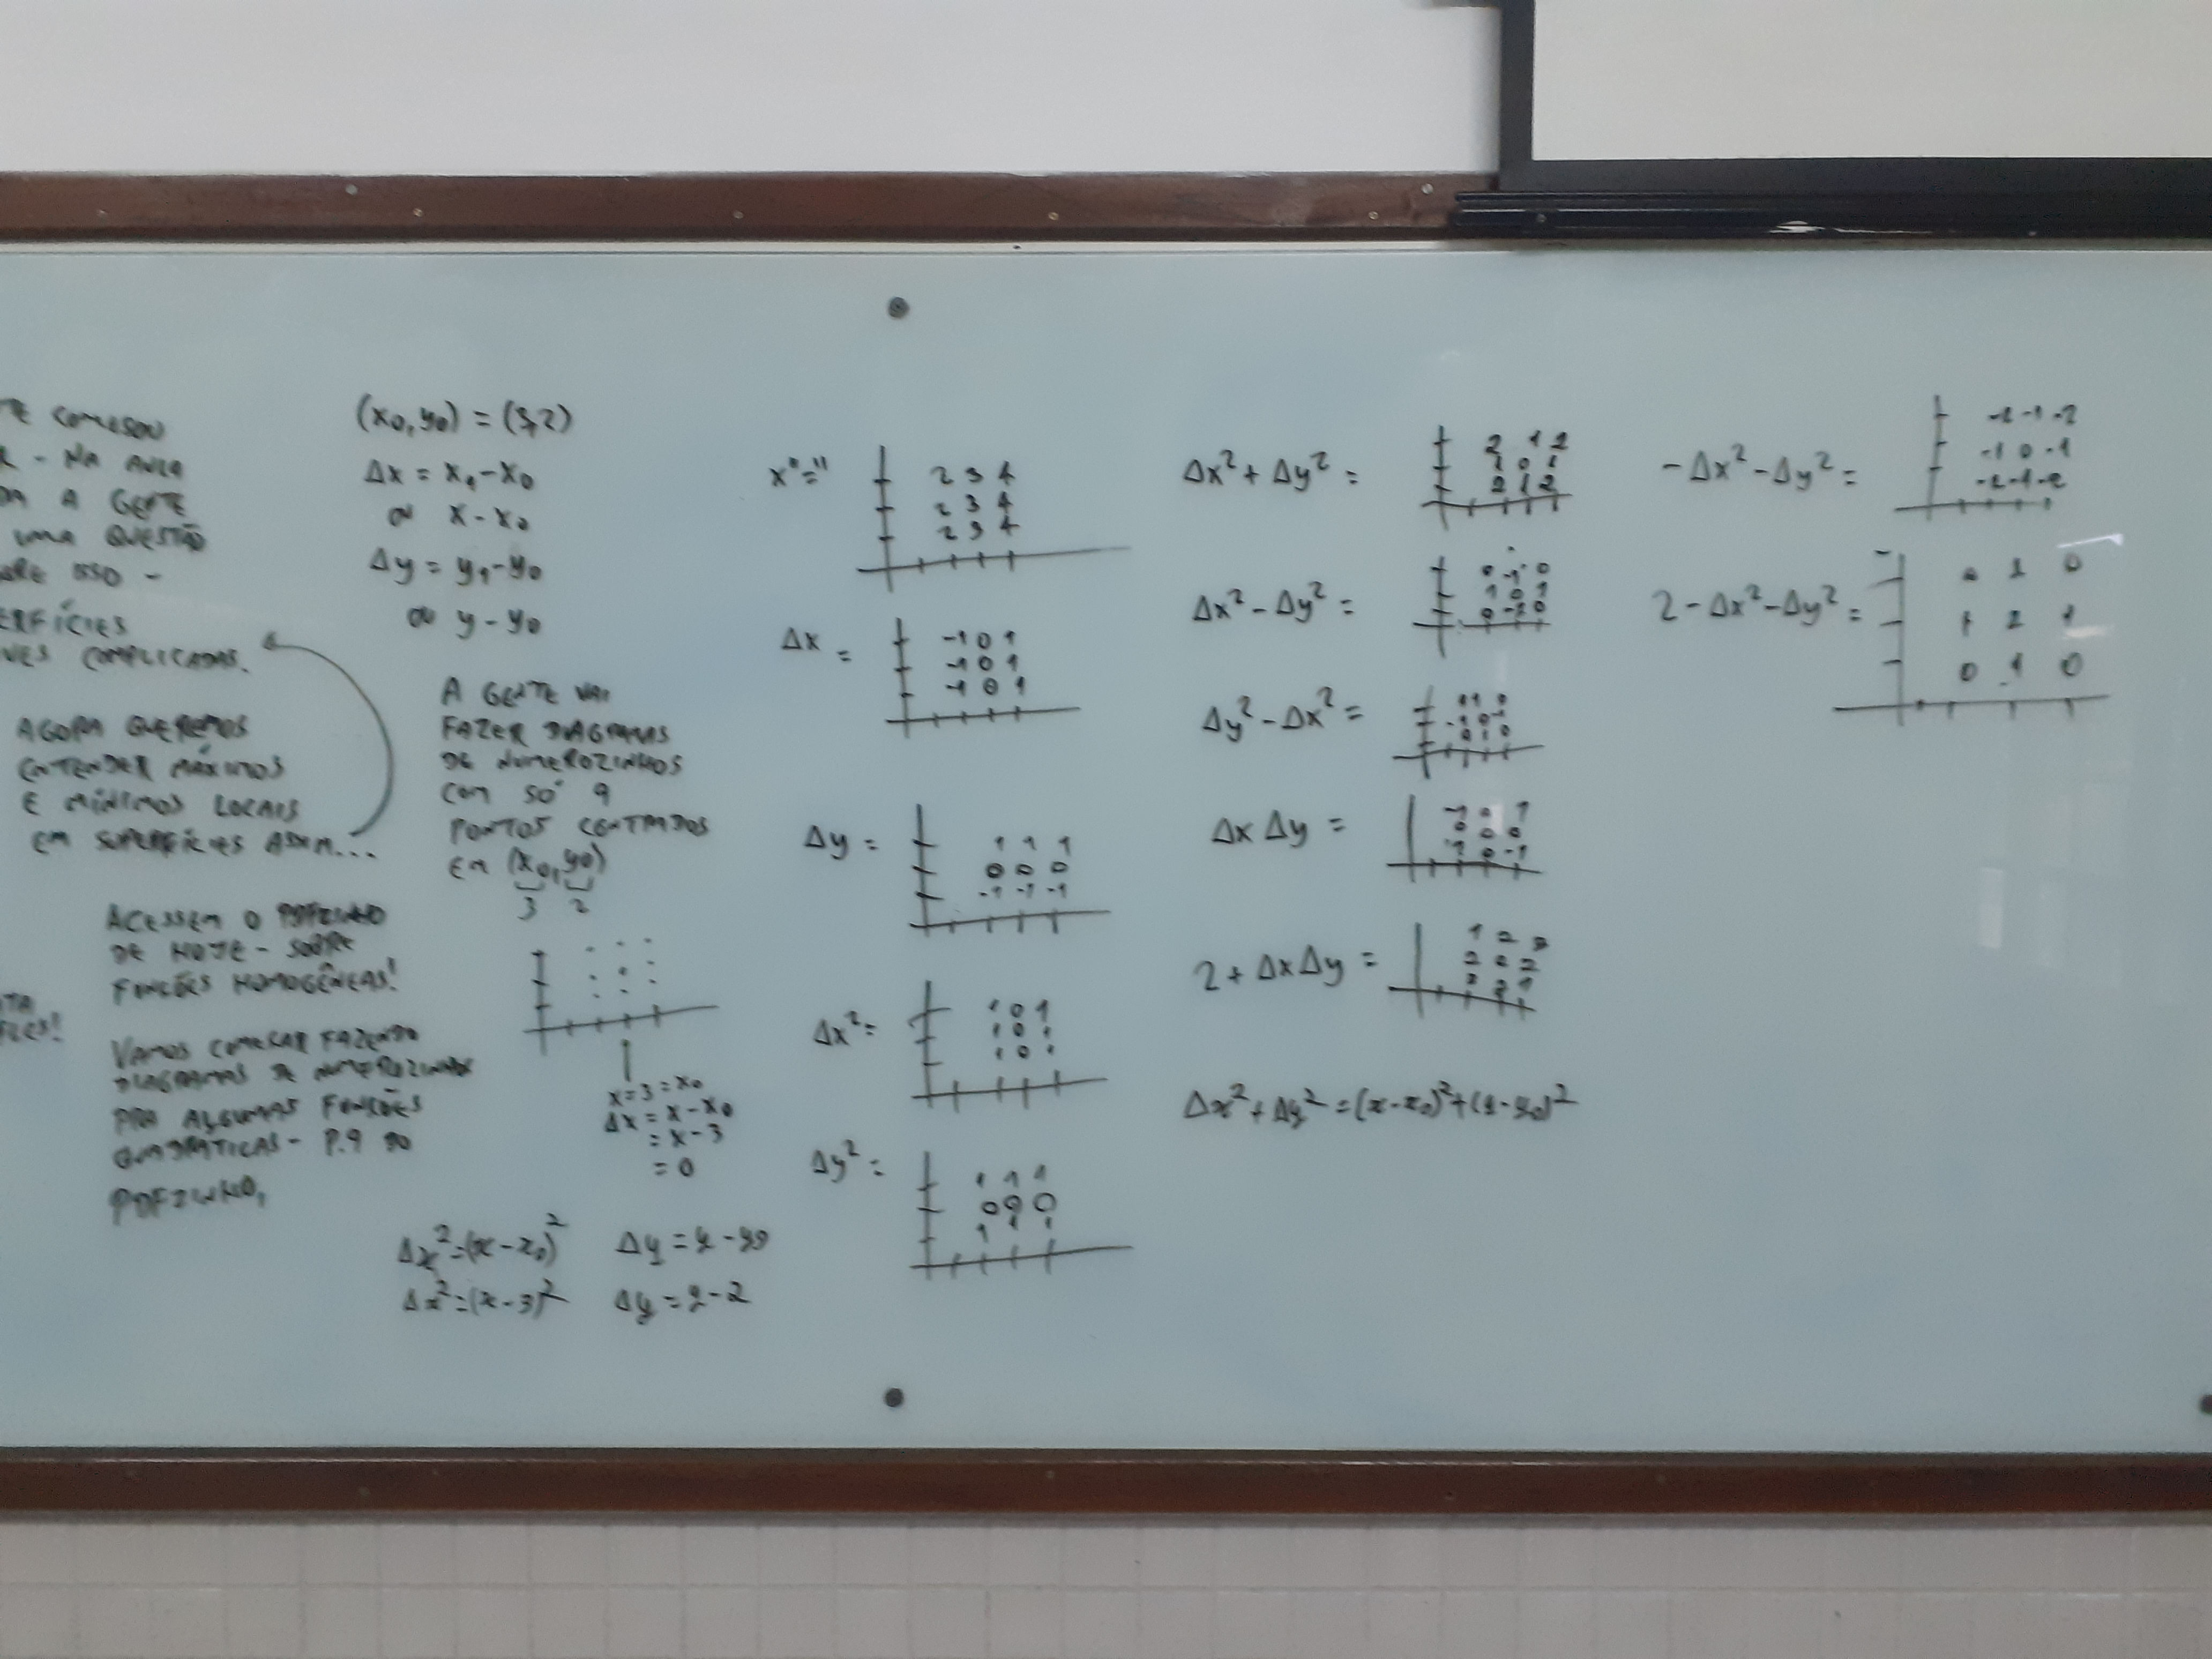 COMESOU
- NA AULA
A GENTE
UMA QUESTÃO
ISSO -
COMPLICADAS.
AGORA QUEREMOS
ENTENDER MÁXIMOS
E MÍNIMOS LOCAIS
EM SUPERFÍCIES ASSIM...
ACESSEM O PDFZINHO
DE HOJE - SOBRE
FUNÇÕES HOMOGÊNEAS!
VAMOS COMEÇAR FAZENDO
DIAGRAMAS DE NUMEROZINHOS
PRA ALGUMAS FUNÇÕES
QUADRÁTICAS - P.9 DO
PDFZINHO,
(x₀,y₀) = (3,2)
Δx = x₁-x₀
OU x-x₀
Δy = y₁-y₀
OU y-y₀
A GENTE VAI
FAZER DIAGRAMAS
DE NUMEROZINHOS
COM SÓ 9
PONTOS CENTRADOS
EM (x₀,y₀)
3 2
x=3=x₀
Δx = x-x₀
= x-3
= 0
Δx²=(x-x₀)² Δy = y-y₀
Δx²=(x-3)² Δy = y-2
x"="
2 3 4
2 3 4
2 3 4
Δx =
-1 0 1
-1 0 1
-1 0 1
Δy =
1 1 1
0 0 0
-1 -1 -1
Δx² =
1 0 1
1 0 1
1 0 1
Δy² =
1 1 1
0 0 0
1 1 1
Δx² + Δy² =
2 1 2
1 0 1
2 1 2
Δx² - Δy² =
0 -1 0
1 0 1
0 -1 0
Δy² - Δx² =
0 1 0
-1 0 -1
0 1 0
Δx Δy =
-1 0 1
0 0 0
1 0 -1
2 + ΔxΔy =
1 2 3
2 2 2
3 2 1
Δx² + Δy² = (x-x₀)² + (y-y₀)²
-Δx² - Δy² =
-2 -1 -2
-1 0 -1
-2 -1 -2
2 - Δx² - Δy² =
0 1 0
1 2 1
0 1 0